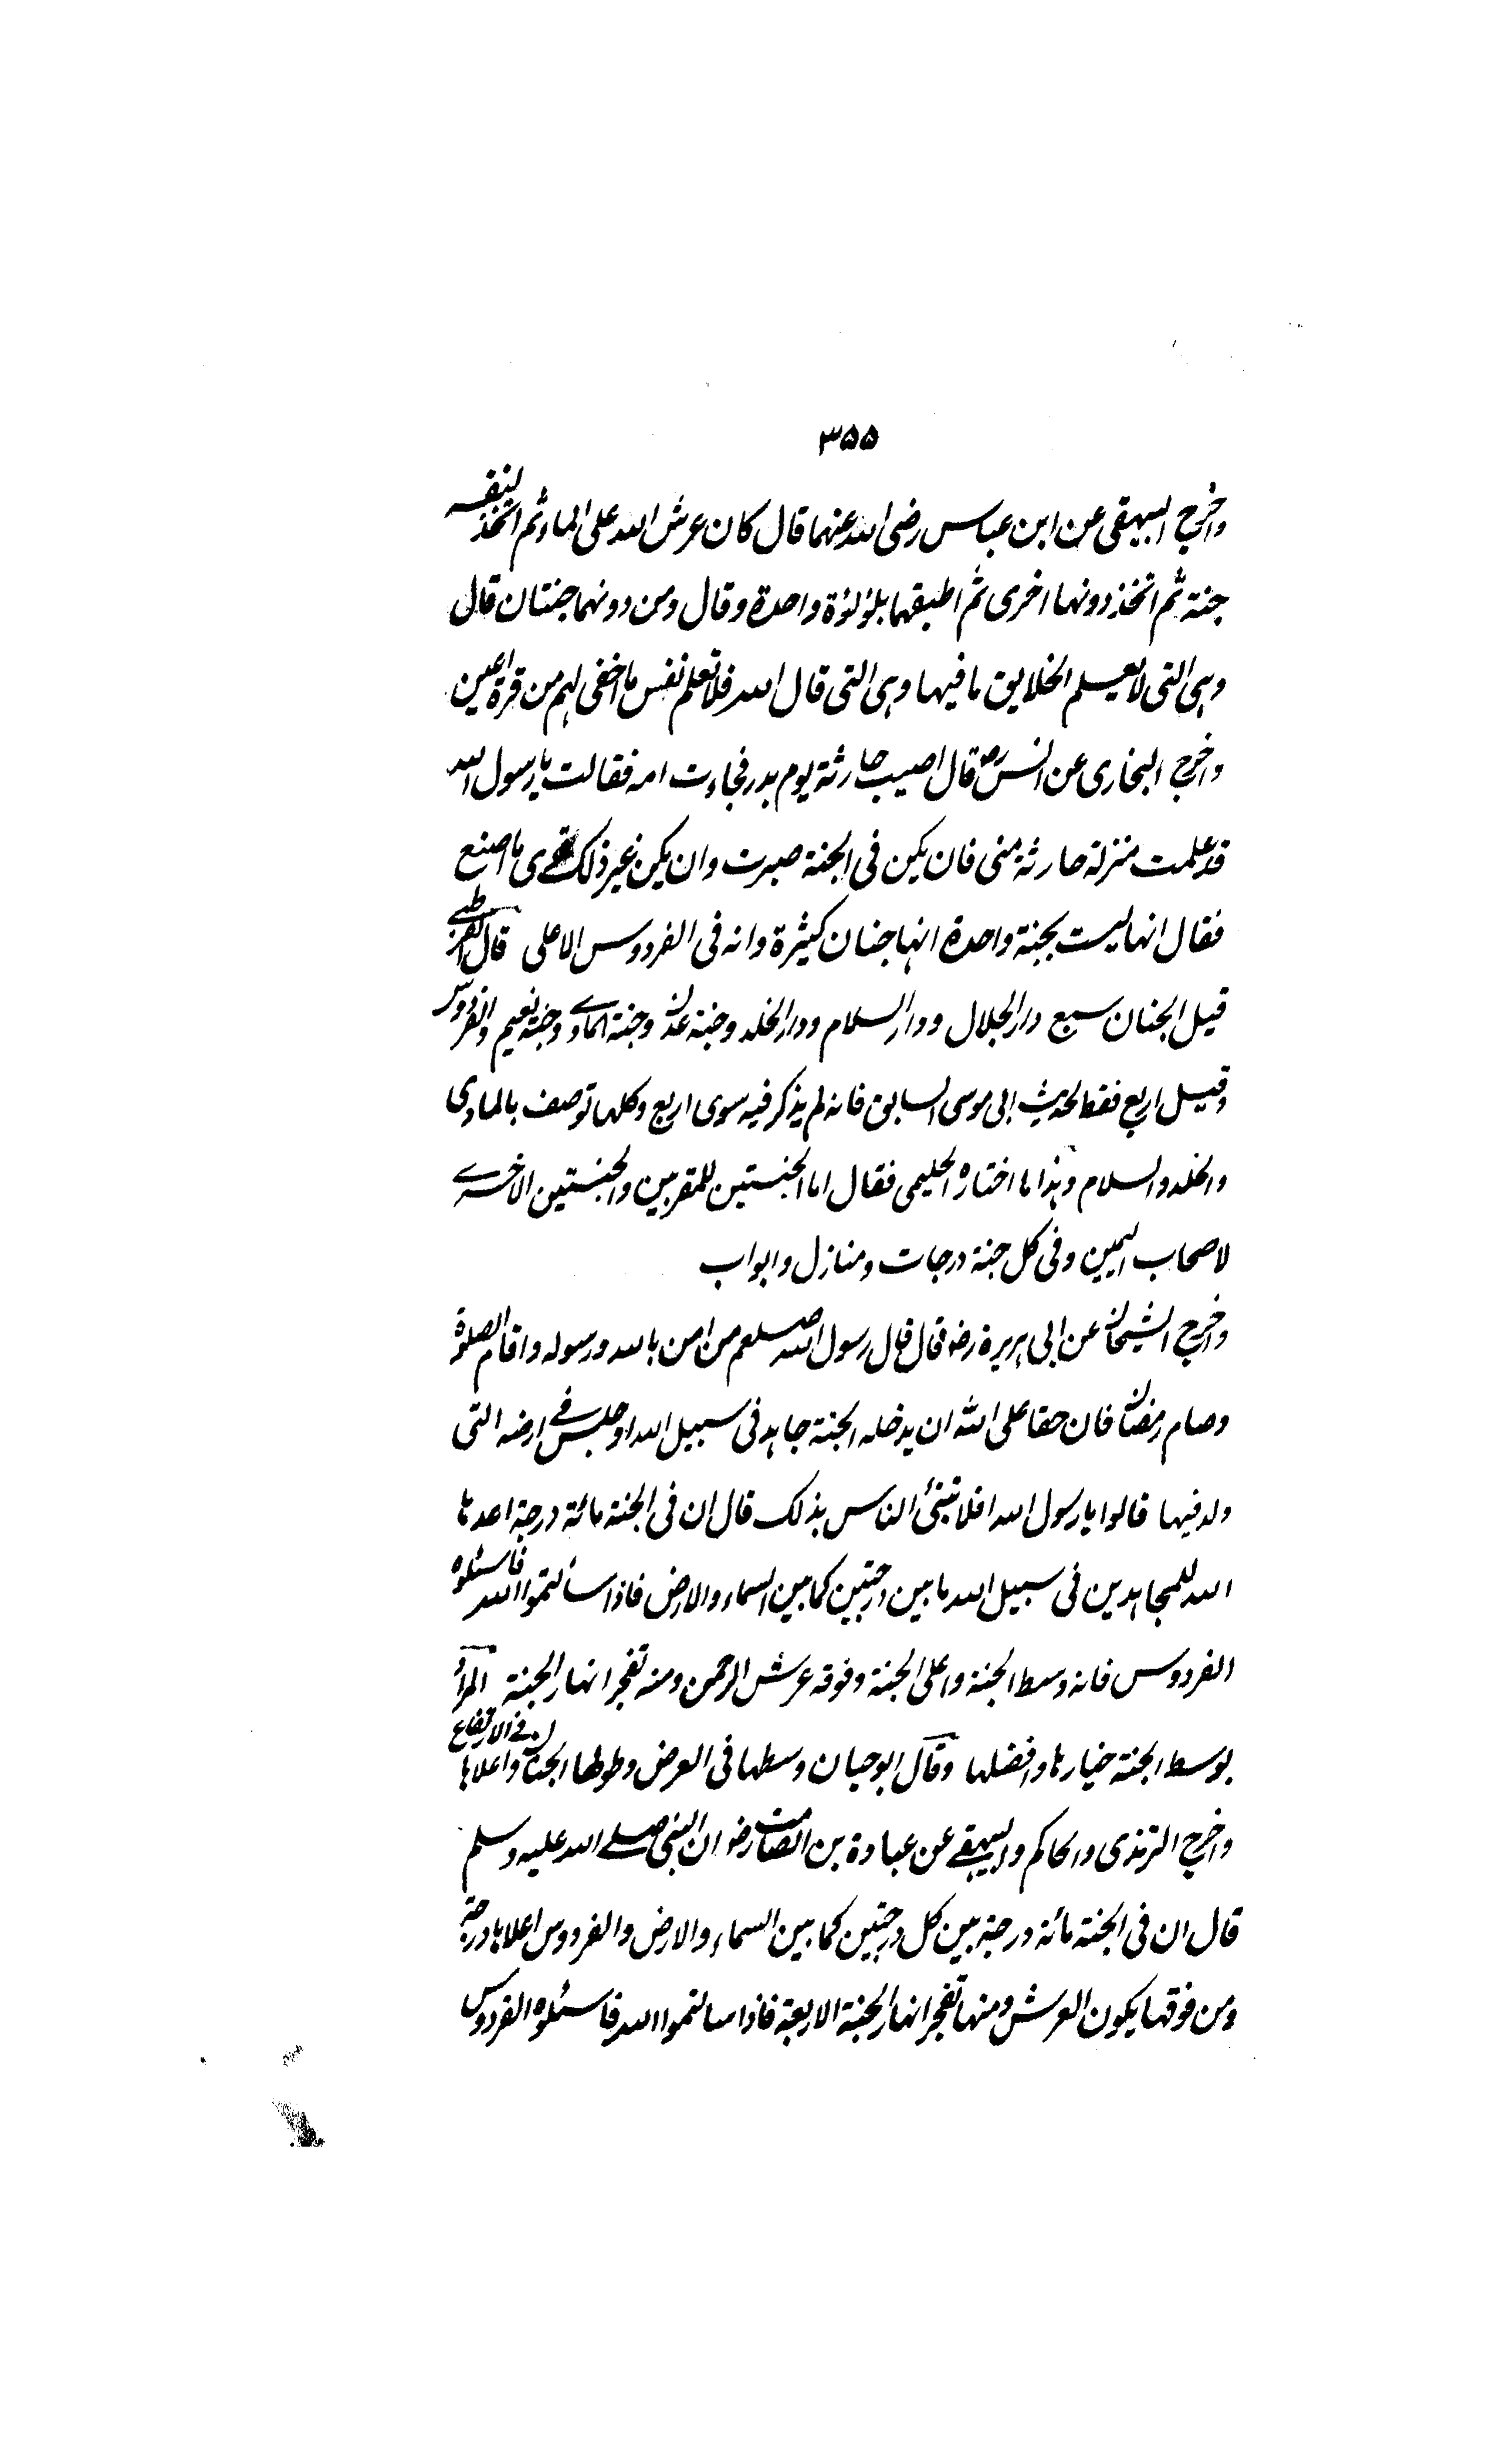 ۳۵۵
واخرج البيهقى عن ابن عباس رضى الله عنهما قال كان عرش الله على الماء ثم اتخذ لنفسه
جنة ثم اتخذ دونها اخرى ثم اطبقهما بلؤلؤة واحدة وقال ومن دونهما جنتان قال
وہى التى لا يعلم الخلايق ما فيها وہى التى قال الله فلا تعلم نفس ما اخفى لہم من قرة اعين
واخرج البخارى عن انس رض قال اصيب حارثة يوم بدر فجاءت امه فقالت يا رسول الله
قد علمت منزلة حارثة منى فان يكن فى الجنة صبرت وان يكن غير ذلك ترى ما اصنع
فقال انها ليست بجنة واحدة انها جنان كثيرة وانه فى الفردوس الاعلى قال القرطبے
قيل الجنان سبع دار الجلال و دار السلام ودار الخلد وجنة عدن وجنة الماوے وجنة نعيم والفردوس
وقيل اربع فقط لحديث ابى موسى السابق فانه لم يذكر فيه سوى اربع وكلها توصف بالماوى
والخلد والسلام وہذا ما اختاره الحليمى فقال اما الجنتين للمقربين والجنتين الاخرے
لاصحاب اليمين وفى كل جنة درجات ومنازل وابواب
واخرج الشيخان عن ابى ہريرة رضو قال قال رسول الله صلعم من امن بالله ورسوله واقام الصلوة
وصام رمضان فان حقا على الله ان يدخله الجنة جاہد فى سبيل الله او جلس فے ارضه التى
ولد فيها قالوا يا رسول الله افلا تنبئ الناس بذلك قال ان فى الجنة مائة درجة اعدہا
الله للمجاہدين فى سبيل الله ما بين درجتين كما بين السماء والارض فاذا سألتموا الله فاسئلوه
الفردوس فانه وسط الجنة واعلى الجنة وفوقه عرش الرحمن ومنه تفجر انهار الجنة المراد
بوسط الجنة خيارہا وافضلها وقال ابو حيان وسطها فى العرض وطولها الجنان واعلاہا فے الارتفاع
واخرج الترمذى والحاكم والبيهقے عن عبادة بن الصامت رضو ان النبى صلے الله عليه وسلم
قال ان فى الجنة مائة درجة بين كل درجتين كما بين السماء والارض والفردوس اعلاہا درجة
ومن فوقها يكون العرش ومنها تفجر انهار الجنة الاربعة فاذا سالتموا الله فاسئلوه الفردوس